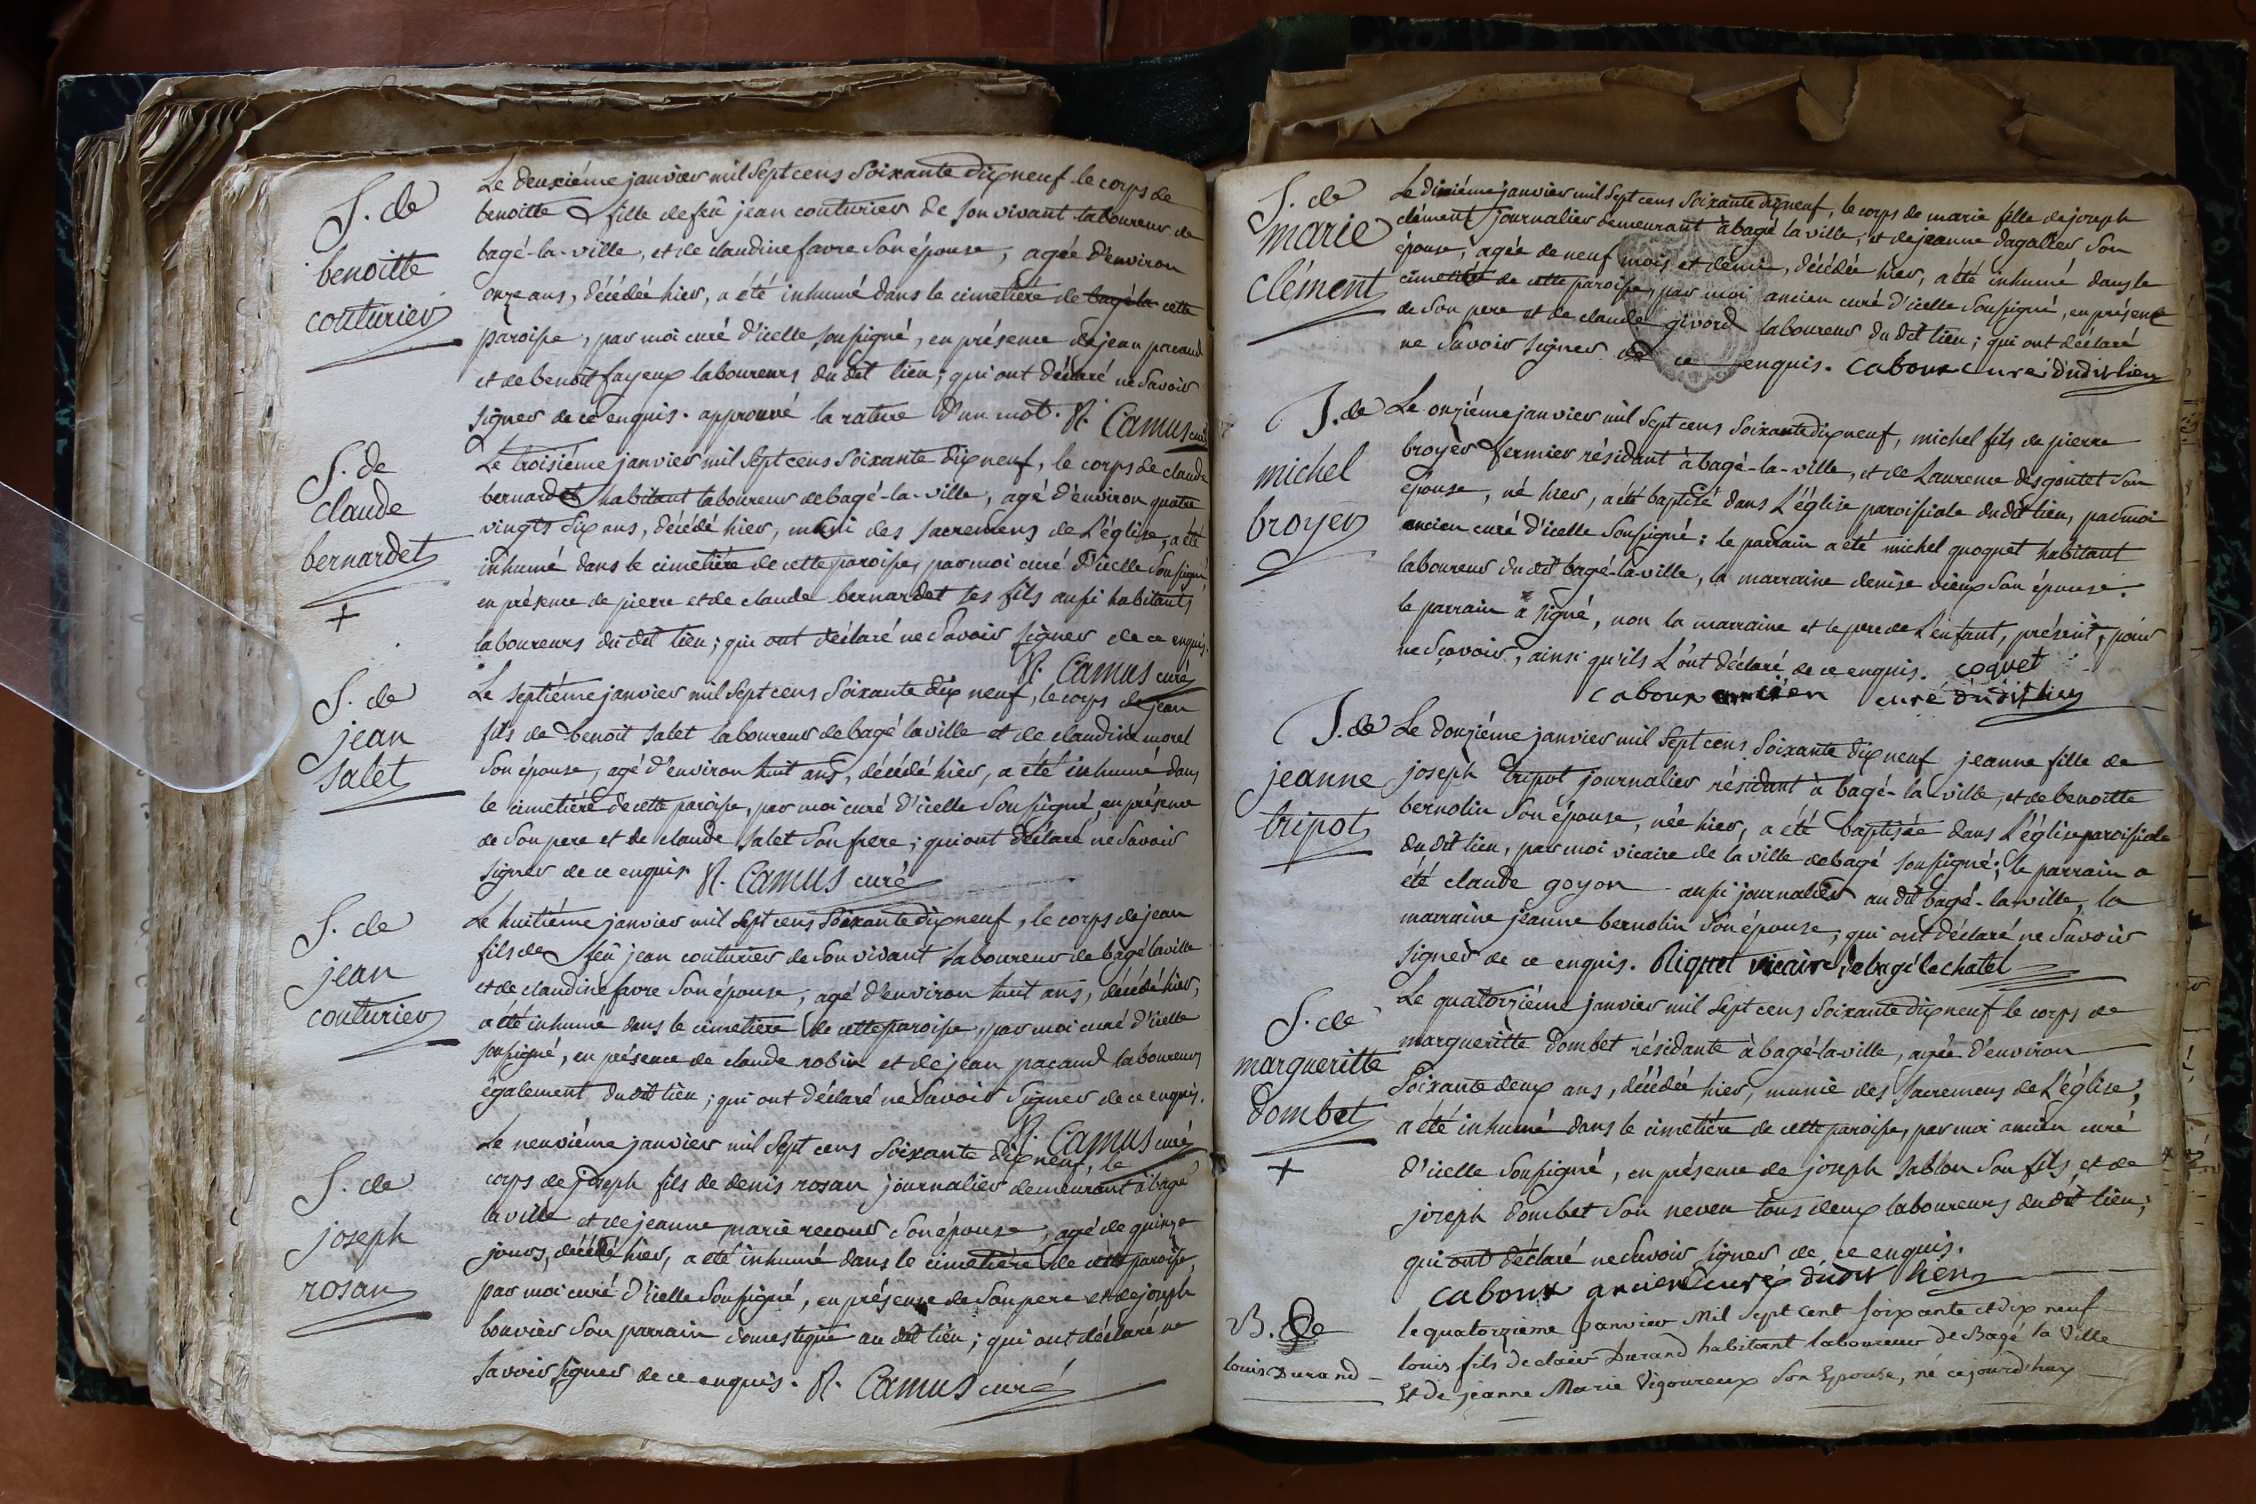 S. de
benoitte
couturier
Le deuxiéme janvier mil Sept cens Soixante dix neuf le corps de
benoitte fille de feû jean couturier de Son vivant laboureur de
bagé-la-ville, et de claudine favre Son épouse, agée d'environ
onze ans, décédée hier, a été inhumé dans le cimetiére de bagé la cette
paroisse, par moi curé d'icelle soussigné, en présence de jean pacaud
et de benoit fayeux laboureurs du dit lieu; qui ont déclaré ne Savoir
Signer de ce enquis. approuvé la rature d'un mot. R. Camus curé
S. de
claude
bernardet
+
Le troisiéme janvier mil Sept cens Soixante dix neuf, le corps de claude
bernardet habitant laboureur de bagé-la-ville, agé d'environ quatre
vingts Six ans, décédé hier, muni des Sacremens de L'église, a été
inhumé dans le cimetiére de cette paroisse, par moi curé d'icelle Soussigné,
en présence de pierre et de claude bernardet ses fils aussi habitants
laboureurs du dit lieu; qui ont déclaré ne Savoir Signer de ce enquis.
R. Camus curé
S. de
jean
Salet
Le Septiéme janvier mil Sept cens Soixante dix neuf, le corps de jean
fils de benoit Salet laboureur de bagé la ville et de claudine morel
Son épouse, agé d'environ huit ans, décédé hier, a été inhumé dans
le cimetiére de cette paroisse, par moi curé d'icelle Soussigné, en présence
de Son pere et de claude Salet Son frere; qui ont déclaré ne Savoir
Signer de ce enquis. R. Camus curé
S. de
jean
couturier
Le huitiéme janvier mil Sept cens Soixante dix neuf, le corps de jean
fils de feû jean couturier de Son vivant laboureur de bagé la ville
et de claudine favre Son épouse, agé d'environ huit ans, décédé hier,
a été inhumé dans le cimetiére de cette paroisse, par moi curé d'icelle
Soussigné, en présence de claude robin et de jean pacaud laboureurs
également du dit lieu; qui ont déclaré ne Savoir Signer de ce enquis.
R. Camus curé
S. de
joseph
rosan
Le neuviéme janvier mil Sept cens Soixante dix neuf, le
corps de joseph fils de denis rosan journalier demeurant à bagé
la ville et de jeanne marie recour Son épouse, agé de quinze
jours, décédé hier, a été inhumé dans le cimetiére de cette paroisse,
par moi curé d'icelle Soussigné, en présence de Son pere et de joseph
bouvier Son parrain domestique au dit lieu; qui ont déclaré ne
Savoir Signer de ce enquis. R. Camus curé
S. de
marie
clément
Le dixiéme janvier mil Sept cens Soixante dix neuf, le corps de marie fille de joseph
clément journalier demeurant à bagé la ville, et de jeanne dagallier Son
épouse, agée de neuf mois et demi, décédée hier, a été inhumé dans le
cimetiére de cette paroisse, par moi ancien curé d'icelle Soussigné, en présence
de Son pere et de claude givord laboureur du dit lieu; qui ont déclaré
ne Savoir Signer de ce enquis. caboux cure dudit lieu
B. de
michel
broyer
Le onziéme janvier mil Sept cens Soixante dix neuf, michel fils de pierre
broyer fermier résidant à bagé-la-ville, et de Laurence desgoutet Son
épouse, né hier, a été baptisé dans L'église paroissiale du dit lieu, par moi
ancien curé d'icelle Soussigné: le parrain a été michel quoquet habitant
laboureur du dit bagé-la-ville, la marraine denise vieux Son épouse.
le parrain a Signé, non la marraine et le pere de L'enfant, présent, pour
ne Sçavoir, ainsi qu'ils L'ont déclaré de ce enquis. coquet
caboux ancien curé dudit lieu
B. de
jeanne
tripot
Le douziéme janvier mil Sept cens Soixante dix neuf jeanne fille de
joseph tripot journalier résidant à bagé-la-ville, et de benoitte
bernolin Son épouse, née hier, a été baptisée dans L'église paroissiale
du dit lieu, par moi vicaire de la ville de bagé Soussigné; le parrain a
été claude goyon aussi journalier au dit bagé-la-ville, la
marraine jeanne bernolin Son épouse, qui ont déclaré ne Savoir
Signer de ce enquis. Riquet vicaire de bagé le chatel
S. de
margueritte
dombet
+
Le quatorziéme janvier mil Sept cens Soixante dix neuf le corps de
margueritte dombet résidante à bagé-la-ville, agée d'environ
Soixante deux ans, décédée hier, munie des Sacremens de L'église,
a été inhumé dans le cimetiére de cette paroisse, par moi ancien curé
d'icelle Soussigné, en présence de joseph Sablon Son fils, et de
joseph dombet Son neveu tous deux laboureurs du dit lieu;
qui ont déclaré ne Savoir Signer de ce enquis.
caboux ancien curé dudit lieu
B. De
louis Durand
le quatorzieme Janvier Mil Sept Cent Soixante et dix neuf
louis fils de clair Durand habitant laboureur de Bagé la Ville
Et de jeanne Marie Vigoureux Son Epouse, né cejourd'huy